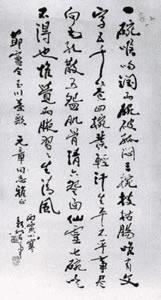 一碗喉吻潤两碗破孤悶三碗搜枯腸唯有文
字五千卷四碗發輕汗平生不平事盡
向毛孔散五碗肌骨清六碗通仙靈七碗吃
不得也惟覺两腋習習生清風
節盧仝玉川茶歌 元章同志雅正
丙寅小寒